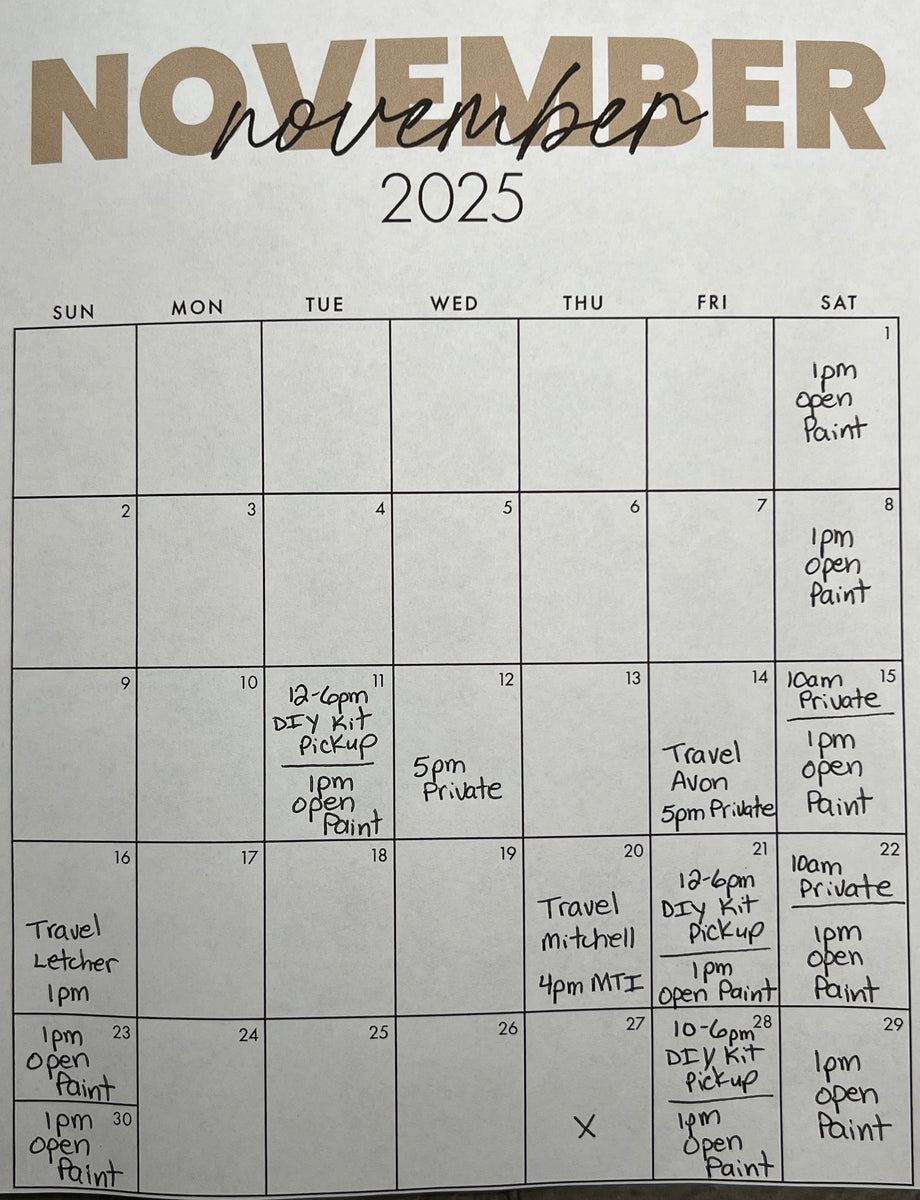 NOVEMBER
november
2025
SUN MON TUE WED THU FRI SAT
1
1pm
open
Paint
2
3
4
5
6
7
8
1pm
open
Paint
9
10
11
12-6pm
DIY Kit
Pickup
1pm
open
Paint
12
5pm
Private
13
14
Travel
Avon
5pm Private
15
10am
Private
1pm
open
Paint
16
Travel
Letcher
1pm
17
18
19
20
Travel
Mitchell
4pm MTI
21
12-6pm
DIY Kit
Pickup
1pm
Open Paint
22
10am
Private
1pm
open
Paint
23
1pm
open
Paint
30
1pm
open
Paint
24
25
26
27
X
28
10-6pm
DIY Kit
Pickup
1pm
Open
Paint
29
1pm
open
Paint